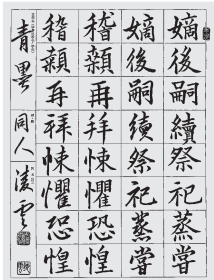 嫡後嗣續祭祀蒸嘗
嫡後嗣續祭祀蒸嘗
稽顙再拜悚懼恐惶
稽顙再拜悚懼恐惶
青墨 同人 凌雲